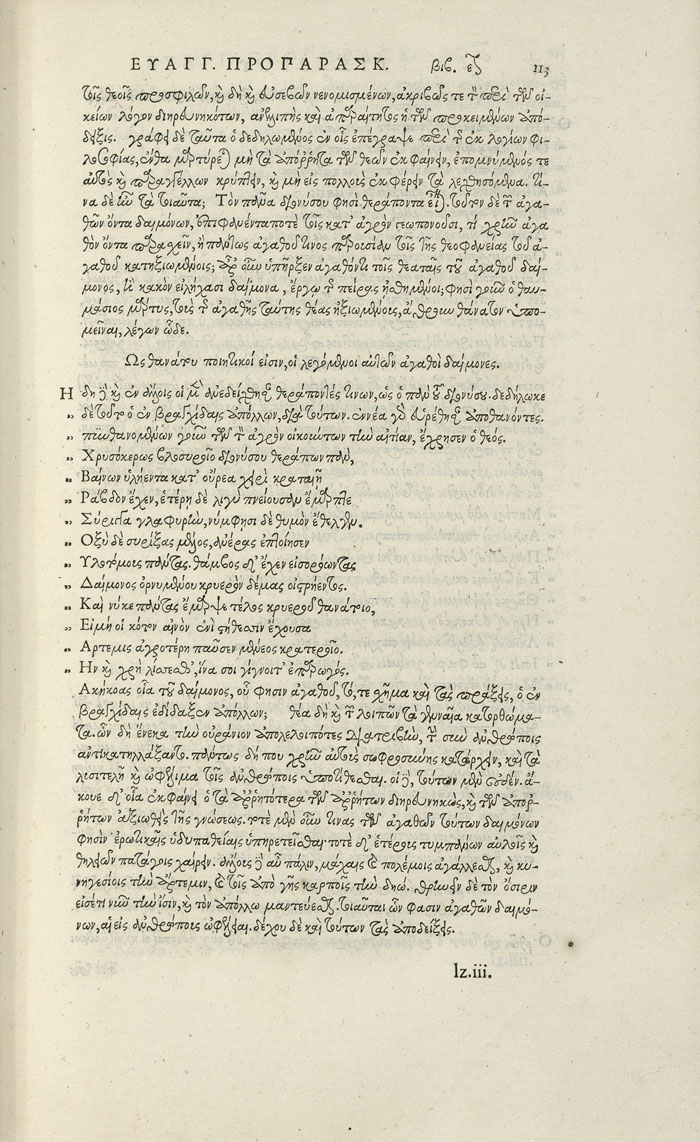 ΕΥΑΓΓ. ΠΡΟΠΑΡΑΣΚ. βιβ. εʹ 113
τοῖς θεοῖς προσφιλῶν, καὶ δὴ καὶ εὐσεβῶν νενομισμένων, ἀκριβῶς τε τὸν περὶ τῶν οἰ-
κείων λόγον διηρευνηκότων, ἀνελλιπὴς καὶ ἀπαραίτητος ἡ τῶν προκειμένων ἀπό-
δειξις. γράφει δὲ ταῦτα ὁ δεδηλωμένος ἐν οἷς ἐπέγραψε περὶ τῆς ἐκ λογίων φι-
λοσοφίας, ἔνθα μαρτύρεται μὴ τὰ ἀπόρρητα τῶν θεῶν ἐκφαίνειν, ἐπομνύμενός τε
αὐτὸς καὶ παραγγέλλων κρύπτειν, καὶ μὴ εἰς πολλοὺς ἐκφέρειν τὰ λεχθησόμενα. τί-
να δὲ ἦν τὰ τοιαῦτα; Τὸν πᾶνα διονύσου φησὶ θεράποντα εἶναι. τοῦτον δὲ τῶν ἀγα-
θῶν ὄντα δαιμόνων, ἐπιφανέντα ποτὲ τοῖς κατ' ἀγρὸν γεωπονοῦσι, τί χρῆν ἀγα
θὸν ὄντα παρασχεῖν, ἢ πάντως ἀγαθοῦ τινος παρουσίαν τοῖς τῆς θεοφανείας τοῦ ἀ-
γαθοῦ κατηξιωμένοις; ἆρ' οὖν ὑπῆρξεν ἀγαθόν τι τοῖς θεαταῖς τοῦ ἀγαθοῦ δαί-
μονος, ἢ κακὸν εἰλήχασι δαίμονα, ἔργῳ τῆς πείρας ᾐσθημένοι; φησὶ γοῦν ὁ θαυ-
μάσιος μάρτυς, τοὺς τῆς ἀγαθῆς ταύτης θέας ἠξιωμένους, ἀθρόως θάνατον ὑπο-
μεῖναι, λέγων ὧδε.
Ὡς θανάτου ποιητικοί εἰσιν, οἱ λεγόμενοι αὐτῶν ἀγαθοὶ δαίμονες.
Η δη δὲ καὶ ἐν δήλοις οἱ μὲν ἀνεδείχθησαν θεράποντές τινων, ὡς ὁ πὰν τοῦ διονύσου. δεδήλωκε
„ δὲ τοῦτο ὁ ἐν βραγχίδαις ἀπόλλων, διὰ τούτων. ἐννέα γὰρ εὑρέθησαν ἀποθανόντες.
„ πυνθανομένων γοῦν τῶν τὸν ἀγρὸν οἰκούντων τὴν αἰτίαν, ἔχρησεν ὁ θεός.
„ Χρυσόκερως βλοσυροῖο διονύσου θεράπων πὰν,
„ Βαίνων ὑλήεντα κατ' οὔρεα χειρὶ κραταιῇ
„ Ῥάβδον ἔχεν, ἑτέρῃ δὲ λιγὺ πνείουσαν ἔμαρπτε
„ Σύριγγα γλαφυρὴν, νύμφῃσι δὲ θυμὸν ἔθελγεν.
„ Ὀξὺ δὲ συρίξας μέλος, ἀνέρας ἐπτοίησεν
„ Ὑλοτόμους πάντας. θάμβος δ' ἔχεν εἰσορόωντας
„ Δαίμονος ὀρνυμένου κρυερὸν δέμας οἰστρήεντος.
„ Καὶ νύ κε πάντας ἔμαρψε τέλος κρυεροῦ θανάτοιο,
„ Εἰ μή οἱ κότον αἰνὸν ἐνὶ στήθεσσιν ἔχουσα
„ Ἄρτεμις ἀγροτέρη παῦσεν μένεος κρατεροῖο.
„ Ἣν καὶ χρὴ λίσσεσθ', ἵνα σοι γίγνοιτ' ἐπαρωγός.
Ἀκήκοας οἷα τοῦ δαίμονος, οὗ φησιν ἀγαθοῦ, τό, τε σχῆμα καὶ τὰς πράξεις, ὁ ἐν
βραγχίδαις ἐδίδαξεν ἀπόλλων; θέα δὴ καὶ τῶν λοιπῶν τὰ γενναῖα κατορθώμα-
τα. ὧν δὴ ἕνεκα τὴν οὐράνιον ἀπολελοιπότες διατριβὴν, τὴν σὺν ἀνθρώποις
ἀντικατηλλάξαντο. πάντως δή που χρῆν αὐτοὺς σωφροσύνης κατάρχειν, καὶ τὰ
λυσιτελῆ καὶ ὠφέλιμα τοῖς ἀνθρώποις ὑποτίθεσθαι. οἱ δὲ, τούτων μὲν οὐδέν. ἄ-
κουε δ' οἷα ἐκφαίνει ὁ τὰ ἀρρητότερα τῶν ἀρρήτων διηρευνηκὼς, καὶ τῶν ἀπορ-
ρήτων ἀξιωθεὶς τῆς γνώσεως. ποτὲ μὲν οὖν τινας τῶν ἀγαθῶν τούτων δαιμόνων
φησὶν ἐρωτικαῖς ἡδυπαθείαις ὑπηρετεῖσθαι· ποτὲ δ' ἑτέρους τυμπάνων αὐλοῖς καὶ
θηλειῶν πατάγοις χαίρειν. ἄλλους δὲ αὖ πάλιν, μάχαις καὶ πολέμοις ἀγάλλεσθαι, καὶ κυ-
νηγεσίοις τὴν ἄρτεμιν, καὶ τοῖς ἀπὸ γῆς καρποῖς τὴν δηώ. θρηνεῖν δὲ τὸν ὄσιριν
εἰσέτι νῦν τὴν ἶσιν, καὶ τὸν ἀπόλλω μαντεύεσθαι. τοιαῦται ὧν φασιν ἀγαθῶν δαιμό-
νων, αἱ εἰς ἀνθρώπους ὠφέλειαι. δέχου δὲ καὶ τούτων τὰς ἀποδείξεις.
lz.iii.